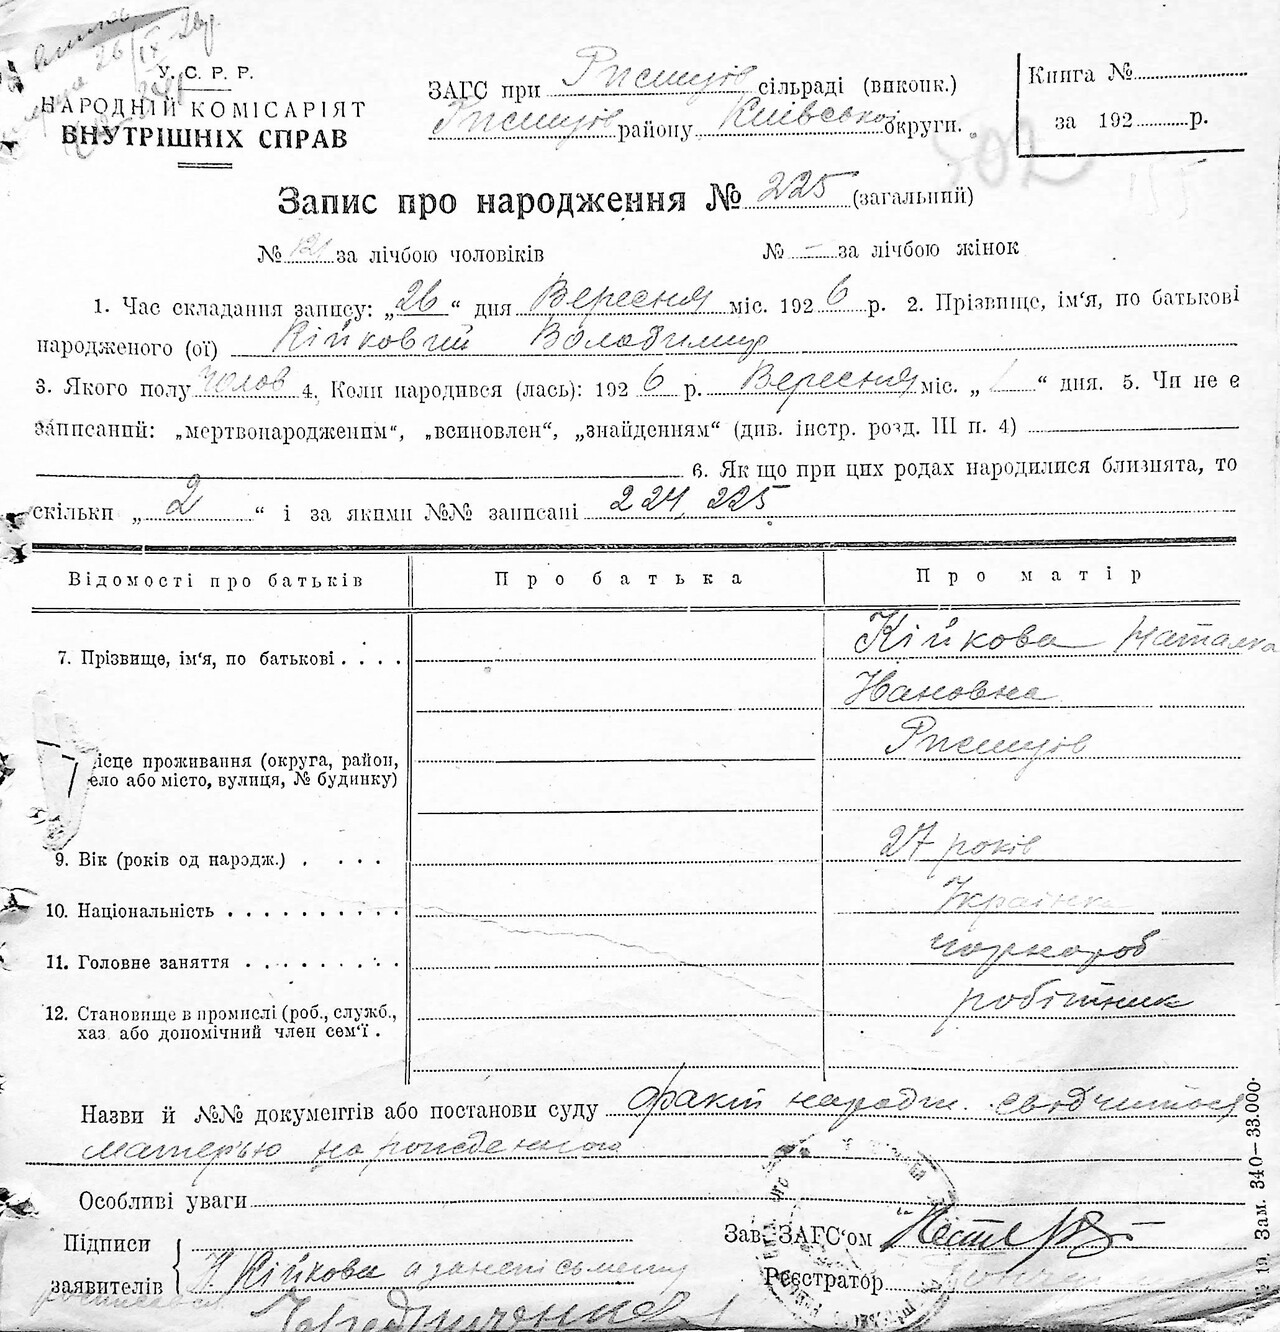 У. С. Р. Р.
НАРОДНІЙ КОМІСАРІЯТ
ВНУТРІШНІХ СПРАВ
ЗАГС при Ржищів сільраді (виконк.)
Ржищів району Київської округи.
Книга №
за 192 р.
502
Запис про народження № 225 (загальний)
№ 121 за лічбою чоловіків № – за лічбою жінок
1. Час складання запису: „26“ дня Вересня міс. 1926 р. 2. Прізвище, ім‘я, по батькові
народженого (ої) Кійковий Володимир
3. Якого полу чолов 4. Коли народився (лась): 1926 р. Вересня міс. „1“ дня. 5. Чи не є
записаний: „мертвонародженим“, „всиновлен“, „знайденням“ (див. інстр. розд. III п. 4)
6. Як що при цих родах народилися близнята, то
скільки „2“ і за якими №№ записані 224, 225
Відомості про батьків Про батька Про матір
7. Прізвище, ім‘я, по батькові . . . . Кійкова Наталка
Ивановна
Ржищів
ісце проживання (округа, район,
ело або місто, вулиця, № будинку)
9. Вік (років од народж.) . . . . 27 років
10. Національність . . . . . . . . . . Українка
11. Головне заняття . . . . . . . . . чорнороб
12. Становище в промислі (роб., служб., робітник
хаз або допомічний член сем‘ї .
Назви й №№ документів або постанови суду факт народж. свідчиться
матерью нарожденного
Особливі уваги
Підписи
заявителів
Н Кійкова а за неписьменну
росписався
Зав. ЗАГС‘ом
Реєстратор
№ 19. Зам. 340—33.000.